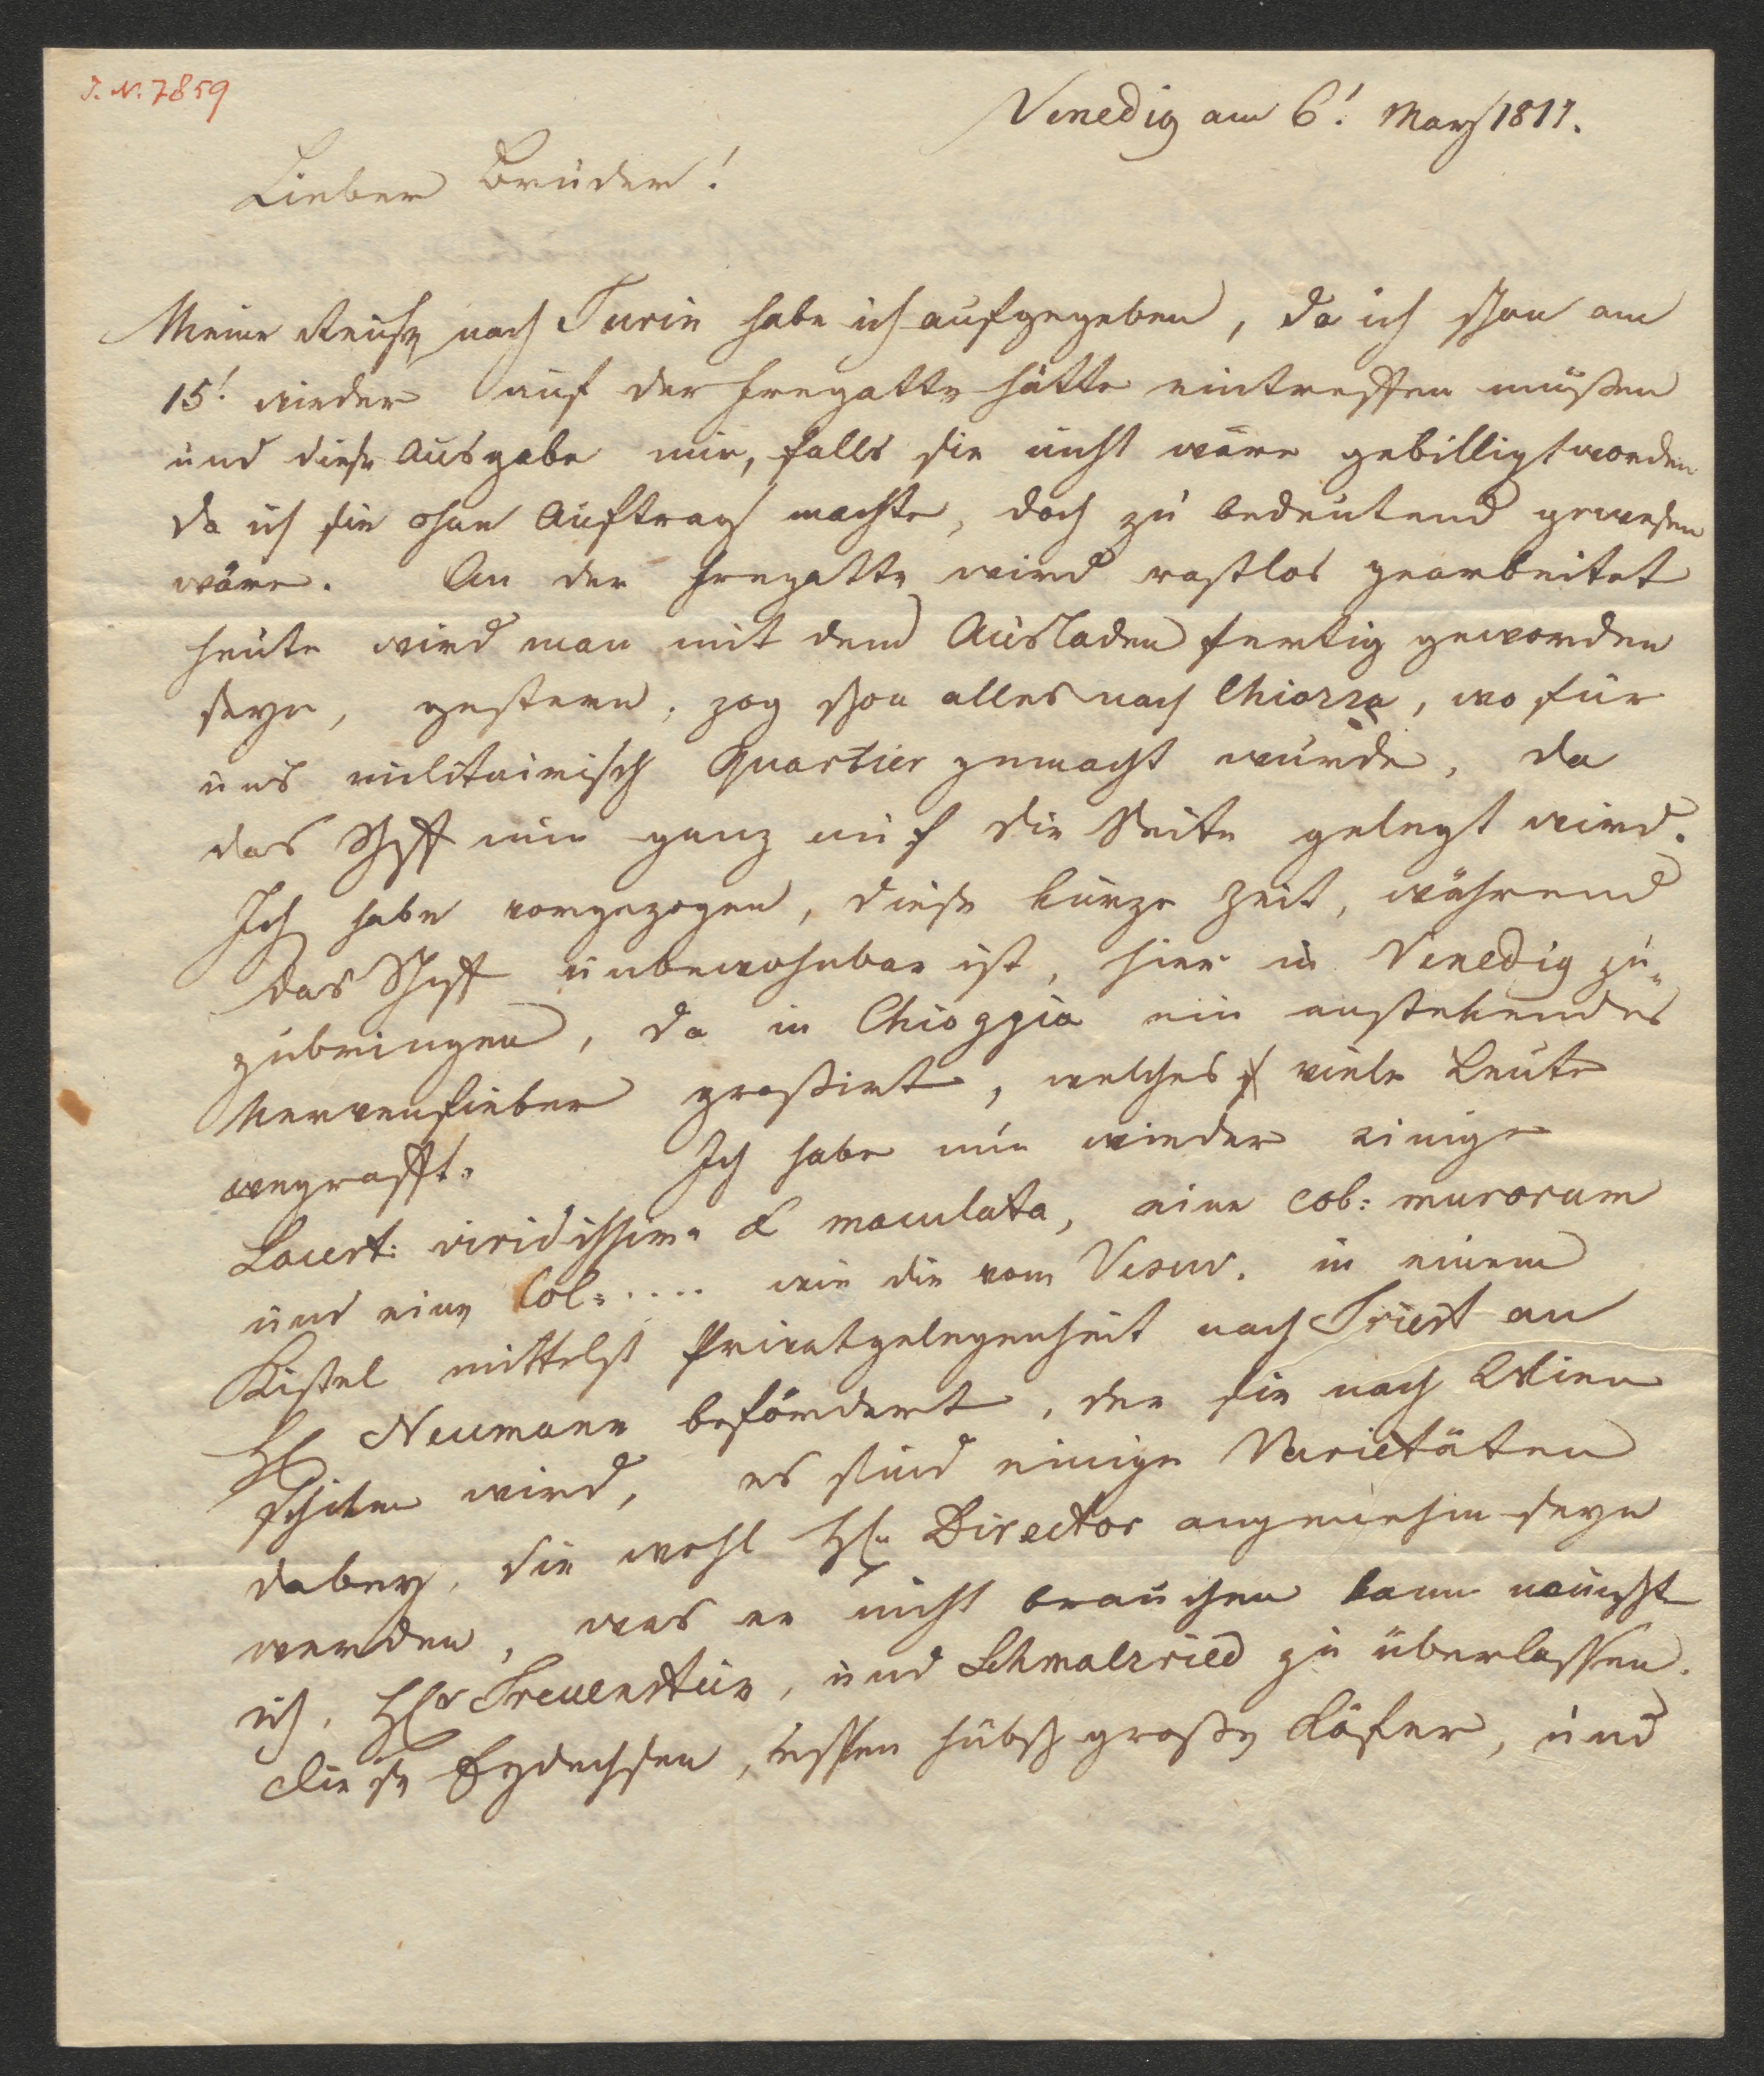 J. N. 7859
Venedig am 6! März 1817.
Lieber Bruder!
Meine Reise nach Turin habe ich aufgegeben, da ich schon am
15! wieder auf der Fregatte hätte eintreffen müßen
und diese Ausgabe mir, falls sie nicht wäre gebilligt worden
da ich sie ohne Auftrag machte, doch zu bedeutend gewesen
wäre. An der Fregatte wird rastlos gearbeitet
heute wird man mit dem Ausladen fertig geworden
seyn, gestern, zog schon alles nach Chiozza, wo für
uns militairisch Quartier gemacht wurde, da
das Schiff nun ganz auf die Seite gelegt wird.
Ich habe vorgezogen, diese kurze Zeit, während
das Schiff unbewohnbar ist, hier in Venedig zu=
zubringen, da in Chioggia ein anstekendes
Nervenfieber graßirt, welches viele Leute
wegrafft. Ich habe nun wieder einige
Lacert: viridissima & maculata, eine Col: murorum
und eine Col: .... wie die vom Vesuv. in einem
Kistel mittelst Privatgelegenheit nach Triest an
H. Neumann befördert, der sie nach Wien
schiken wird, es sind einige Varietäten
dabey, die wohl H. Director angenehm seyn
werden, was er nicht brauchen kann wünscht
ich, H. Treuenstein, und Schmalzried zu überlassen.
Diese Eydechsen, essen hübsch große Käfer, und